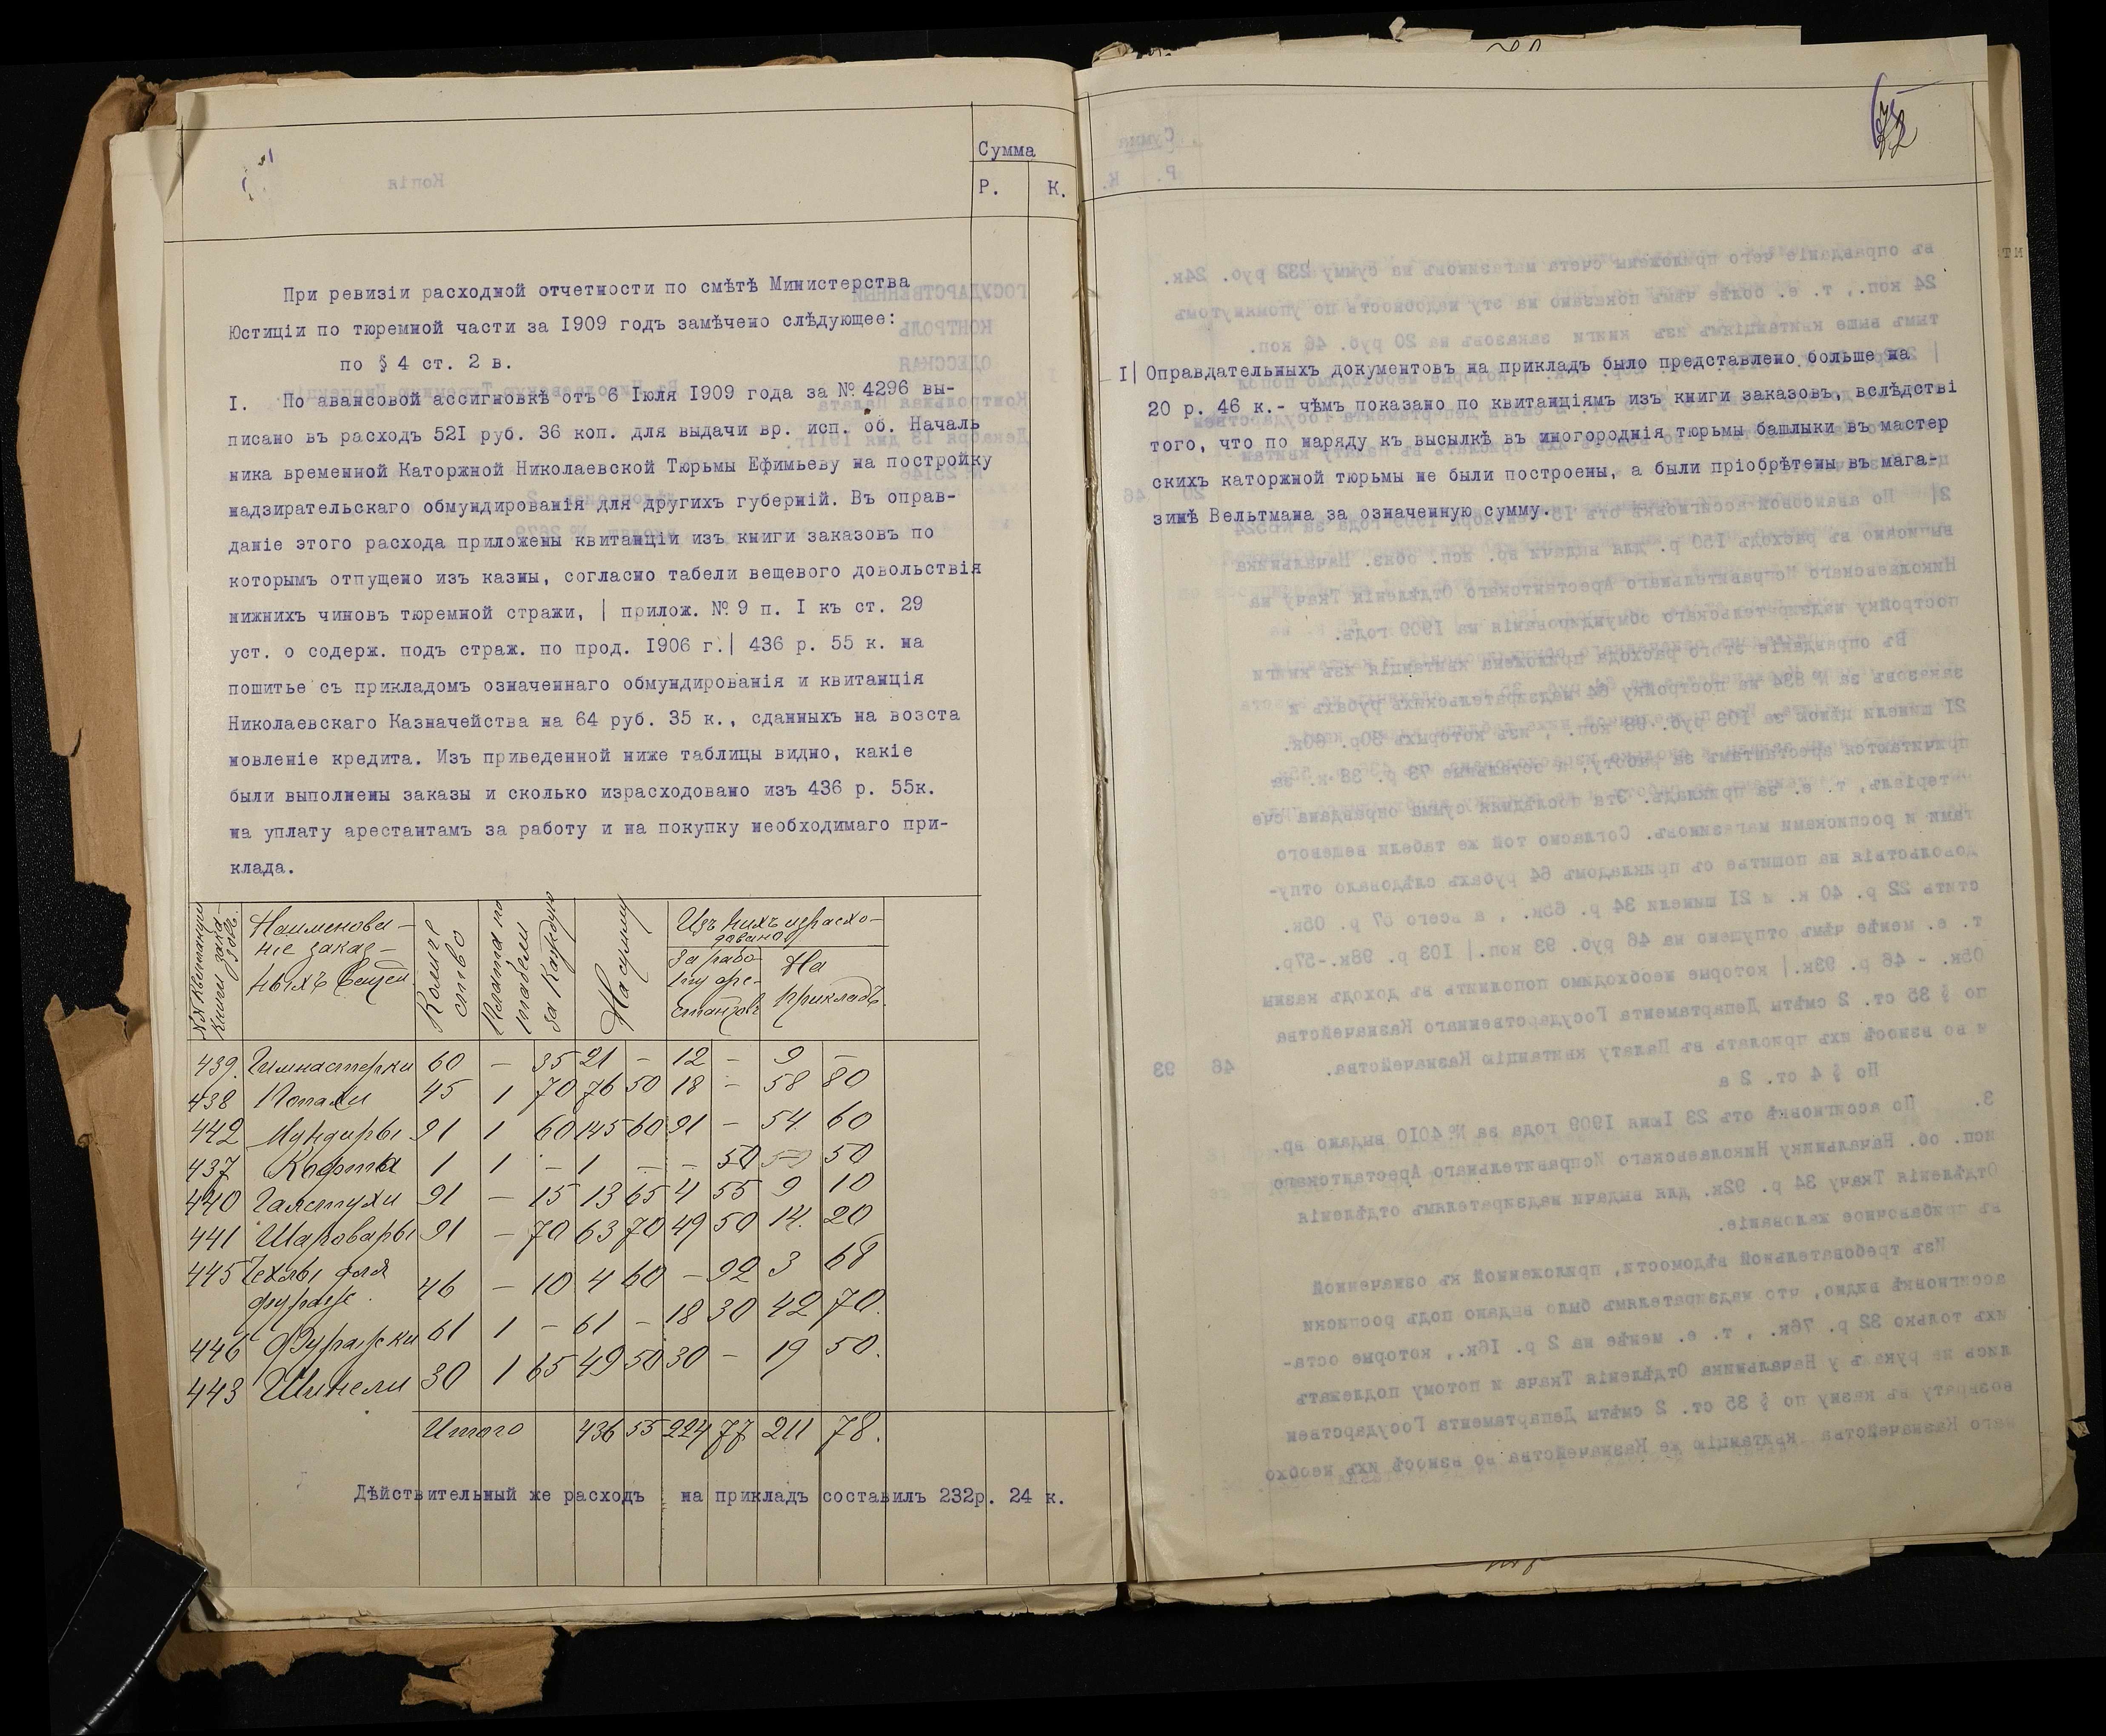 Сумма
Р. К.
При ревизіи расходной отчетности по смѣтѣ Министерства
Юстиціи по тюремной части за 1909 годъ замѣчено слѣдующее:
по § 4 ст. 2 в.
I. По авансовой ассигновкѣ отъ 6 Іюля 1909 года за № 4296 вы-
писано въ расходъ 521 руб. 36 коп. для выдачи вр. исп. об. Началь
ника временной Каторжной Николаевской Тюрьмы Ефимьеву на постройку
надзирательскаго обмундированія для другихъ губерній. Въ оправ-
даніе этого расхода приложены квитанціи изъ книги заказовъ по
которымъ отпущено изъ казны, согласно табели вещевого довольствія
нижнихъ чиновъ тюремной стражи, | прилож. № 9 п. I къ ст. 29
уст. о содерж. подъ страж. по прод. 1906 г.| 436 р. 55 к. на
пошитье съ прикладомъ означеннаго обмундированія и квитанція
Николаевскаго Казначейства на 64 руб. 35 к., сданныхъ на возста
новленіе кредита. Изъ приведенной ниже таблицы видно, какіе
были выполнены заказы и сколько израсходовано изъ 436 р. 55к.
на уплату арестантамъ за работу и на покупку необходимаго при-
клада.
№№ Квитанціи Книги зака-зовъ. Наименова-ніе заказ-ныхъ вещей Количе ство Плата по табели за каждую На сумму Изъ нихъ израсхо-довано
За рабо ту аре-стантовъ На прикладъ
439. Гимнастерки 60 — 35 21 — 12 — 9 —
438 Папахи 45 1 70 76 50 18 — 58 80
442 Мундиры 91 1 60 145 60 91 — 54 60
437 Кофта 1 1 — 1 — — 50 50
440 Галстухи 91 — 15 13 65 4 55 9 10
441 Шаровары 91 — 70 63 70 49 50 14. 20
445 Чехлы для фураж. 46 — 10 4 60 — 92 3 68
446 Фуражки 61 1 — 61 — 18 30 42 70.
443 Шинели 30 1 65 49 50 30 — 19 50.
Итого 436 55 224 77 211 78.
Дѣйствительный же расходъ на прикладъ составилъ 232р. 24 к.
I| Оправдательныхъ документовъ на прикладъ было представлено больше на
20 р. 46 к.- чѣмъ показано по квитанціямъ изъ книги заказовъ, вслѣдстві
того, что по наряду къ высылкѣ въ иногороднія тюрьмы башлыки въ мастер
скихъ каторжной тюрьмы не были построены, а были пріобрѣтены въ мага-
зинѣ Вельтмана за означенную сумму.